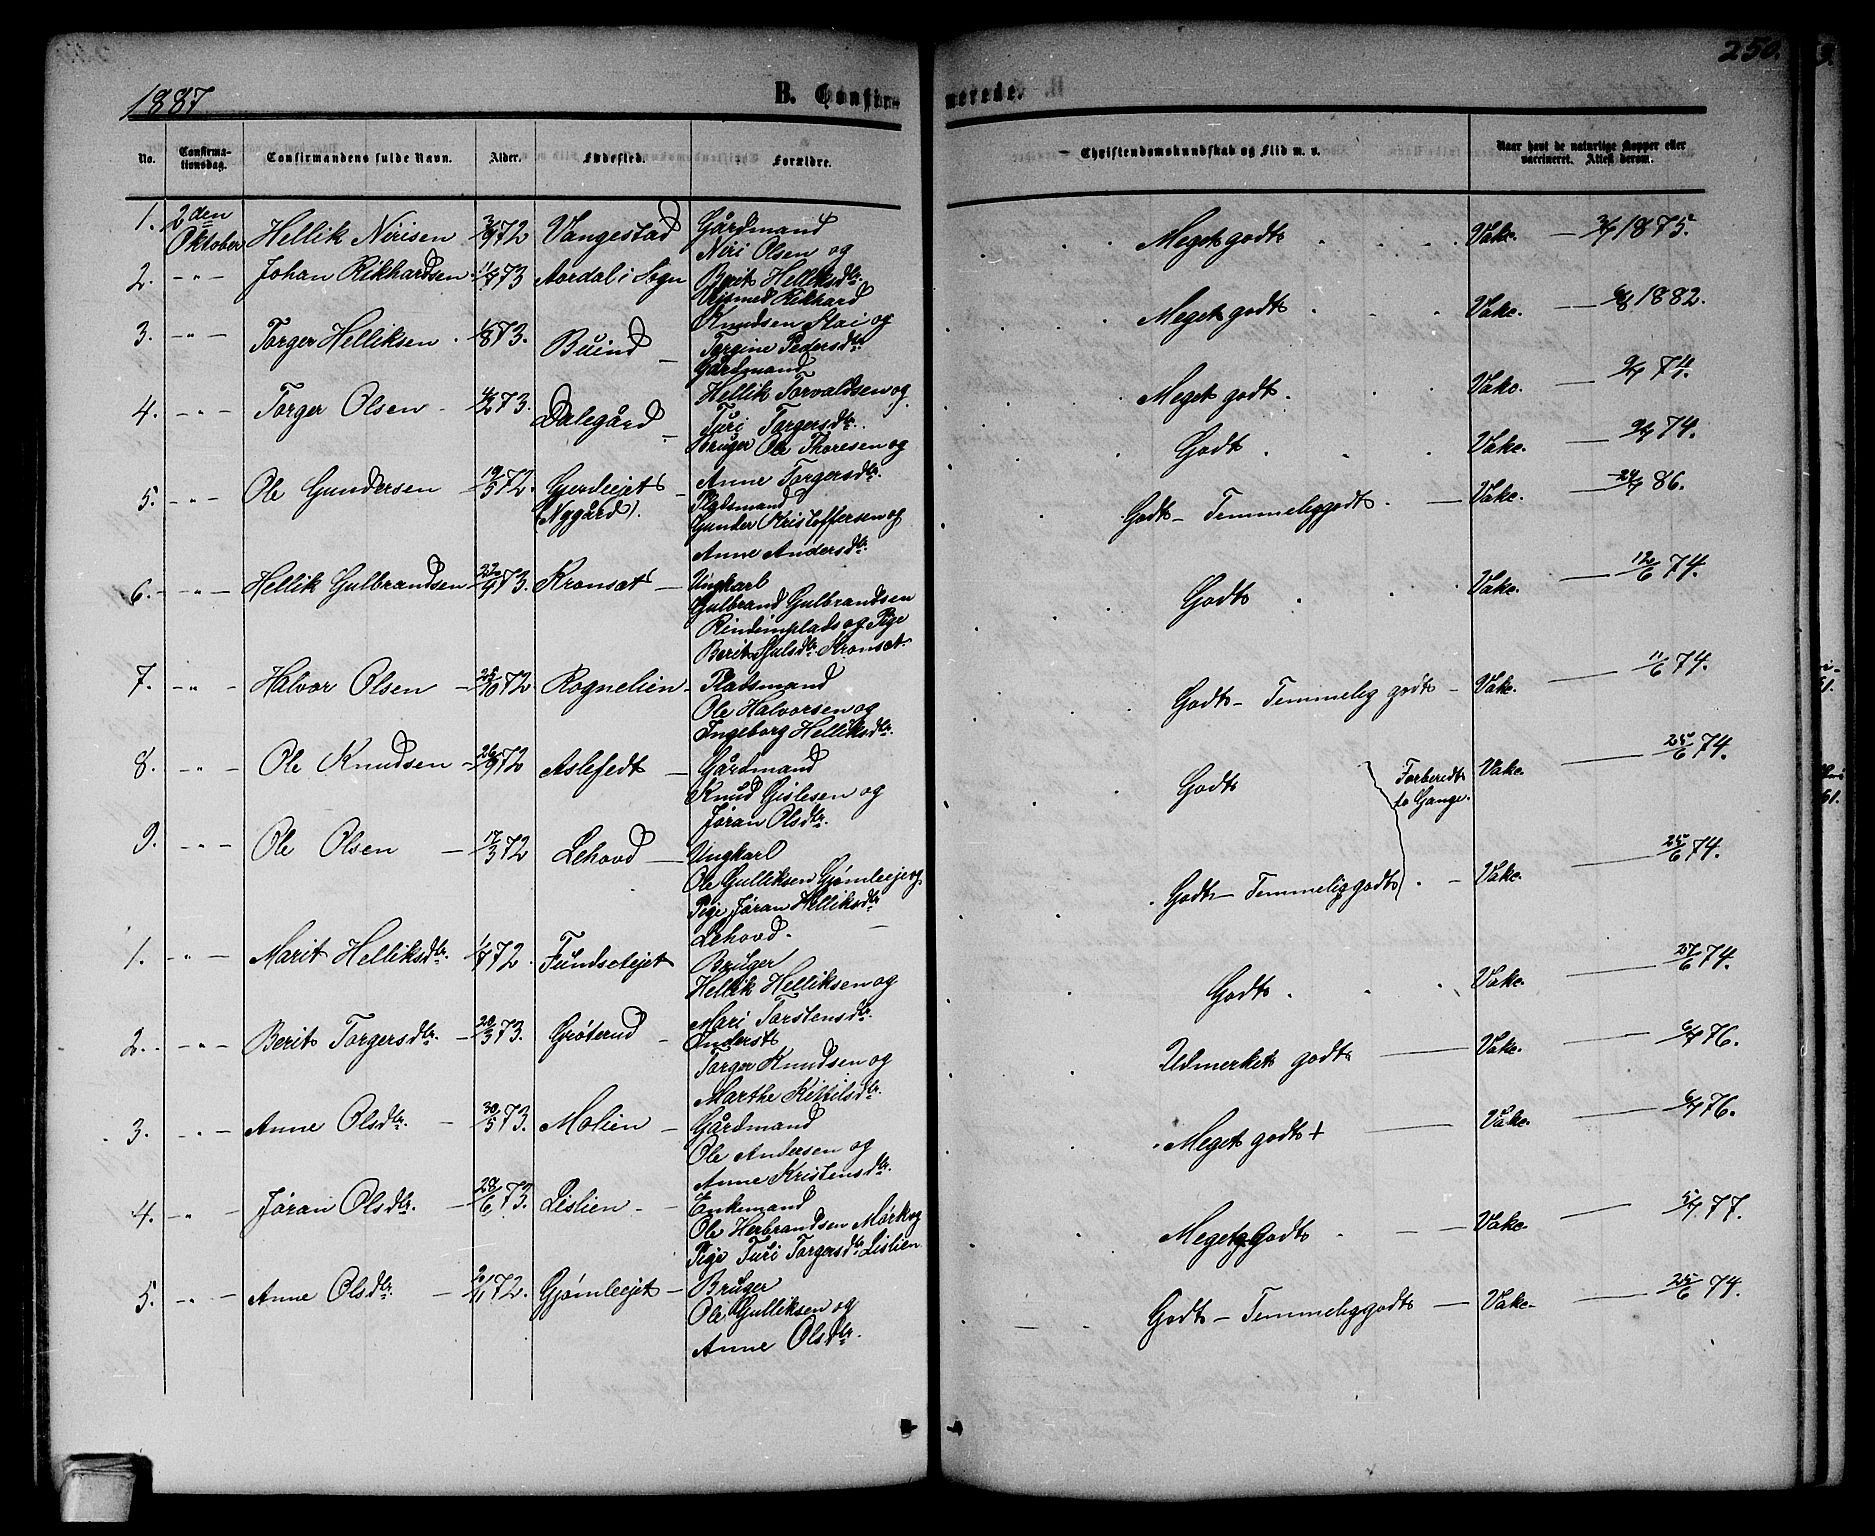 250.
1887
B. Confirmerede.
No. Confirmationsdag. Confirmandens fulde Navn. Alder. Fødested. Forældre. Christendomskundskab og Flid m. v. Naar havt de naturlige Kopper eller vaccineret. Attest derom.
1. 2den Oktober Hellik Nirisen 3/9 72 Vangestad Gårdmand Niri Olsen og Berit Helliksdtr. Meget godt Vakc. 1875.
2. -"- Johan Rikhardsen 73 Aardal i Sogn Rikhard Knudsen Kai og Torgine Pedersdtr. Meget godt Vakc. 1882.
3. -"- Torger Helliksen 73. Buind Gårdmand Hellik Torvaldsen og Turi Torgersdtr. Meget godt. Vakc. 74.
4. -"- Torger Olsen 73. Dalegård Bruger Ole Thoresen og Anne Torgersdtr. Godt Vakc. 74.
5. -"- Ole Gundersen 19/5 72. Gjerdeejet (Nygård). Pladsmand Gunder Kristoffersen og Anne Andersdtr. Godt - Temmelig godt Vakc. 86.
6. -"- Hellik Gulbrandsen 22/9 73. Kronsæt Ungkarl Gulbrand Gulbrandsen Rindemplads og Pige Berit Julsdtr. Kronsæt. Godt Vakc. 12/6 74.
7. -"- Halvor Olsen 72 Rognelien Pladsmand Ole Halvorsen og Ingeborg Helliksdtr. Godt - Temmelig godt Vakc. 11/6 74.
8. -"- Ole Knudsen 26/9 72 Aslefedt Gårdmand Knud Gislesen og Jøran Olsdtr. Godt Forberedt to Gange. Vakc. 25/6 74.
9. -"- Ole Olsen 17/3 72 Lehovd Ungkarl Ole Gulliksen Gjømleejet og Pige Jøran Helliksdtr Lehovd. Godt - Temmelig godt Vakc. 25/6 74.
1. -"- Marit Helliksdtr. 72. Fundsetejet Bruger Hellik Helliksen og Mari Torstensdtr. Godt Vakc. 27/6 74.
2. -"- Berit Torgersdtr. 20/3 73. Grøterud Inderst Torger Knudsen og Marthe Kittilsdtr. Udmerket godt Vakc. 76.
3. -"- Anne Olsdtr. 30/5 73. Molien Gårdmand Ole Andersen og Anne Kristensdtr. Meget godt + Vakc. 76.
4. -"- Jøran Olsdtr. 28/6 73. Lislien Enkemand Ole Herbrandsen Mørk og Pige Turi Torgersdtr. Lislien Meget Godt Vakc. 77.
5. -"- Anne Olsdtr. 72. Gjømleejet Bruger Ole Gulliksen og Anne Olsdtr. Godt - Temmelig godt Vakc. 25/6 74.